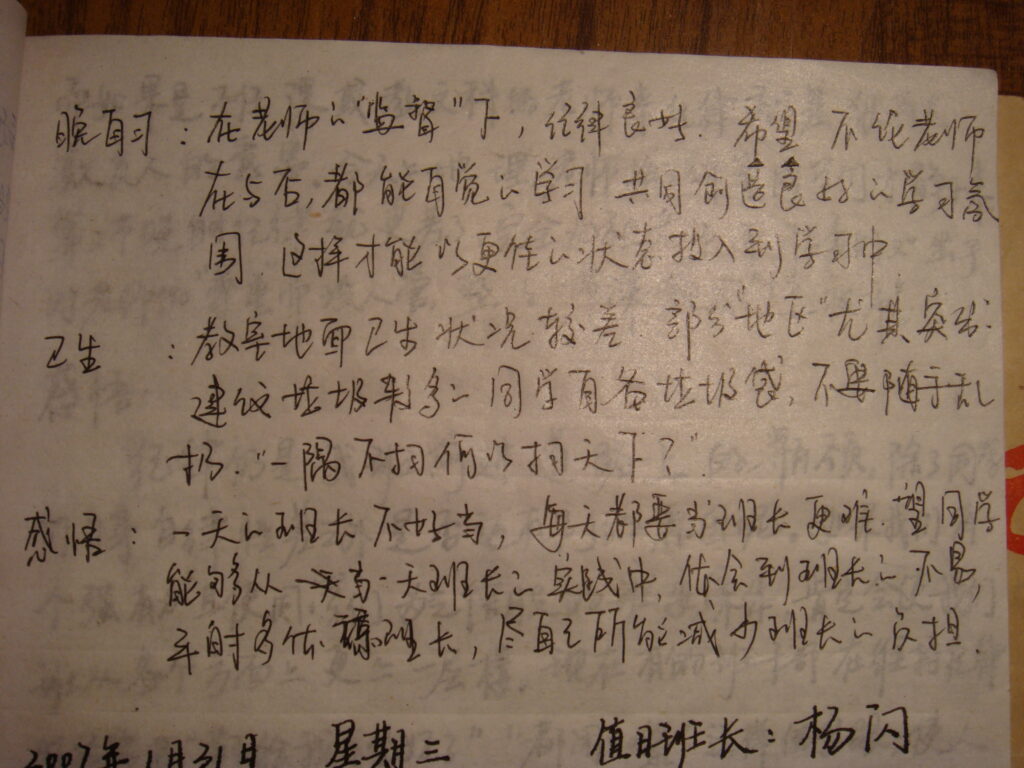 晚自习：在老师的“监督”下，纪律良好.希望 不论老师
在与否，都能自觉的学习 共同创造良好的学习氛
围.这样才能以更佳的状态投入到学习中.
卫生 ：教室地面卫生状况较差.部分“地区”尤其突出.
建议垃圾较多的同学自备垃圾袋，不要随手乱
扔.“一隅不扫何以扫天下？”.
感悟：一天的班长不好当，每天都要当班长更难.望同学
能够从当一天班长的实践中，体会到班长的不易，
平时多体谅班长，尽自己所能减少班长的负担.
2007年1月31日 星期三 值日班长：杨闪